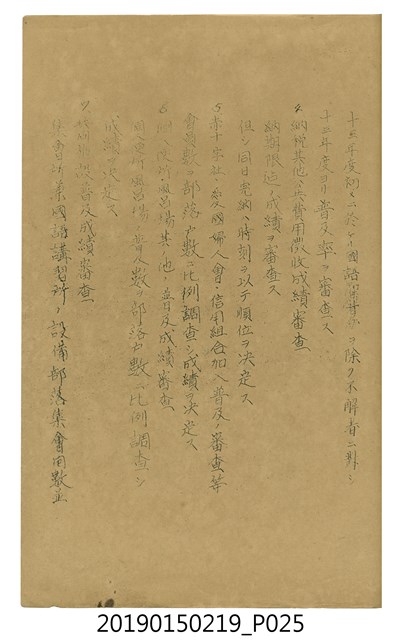 十三年度初メニ於ケル國語解者ヲ除ク不解者ニ對シ
十三年度ヨリ普及率ヲ審査ス
4. 納税其他公共費用徴收成績審査
納期限迄ノ成績ヲ審査ス
但シ同日完納ハ時刻ヲ以テ順位ヲ決定ス
5. 赤十字社、愛國婦人會、信用組合加入普及ノ審査等
會員數ヲ部落戸數ニ比例調査シ成績ヲ決定ス
6. 便所風呂場其ノ他ノ普及成績審査
便所風呂場ノ普及數ヲ部落戸數ニ比例調査シ
成績ヲ決定ス
7. 施設普及成績審査
集會所兼國語講習所ノ設備部落集會回數並
20190150219_P025